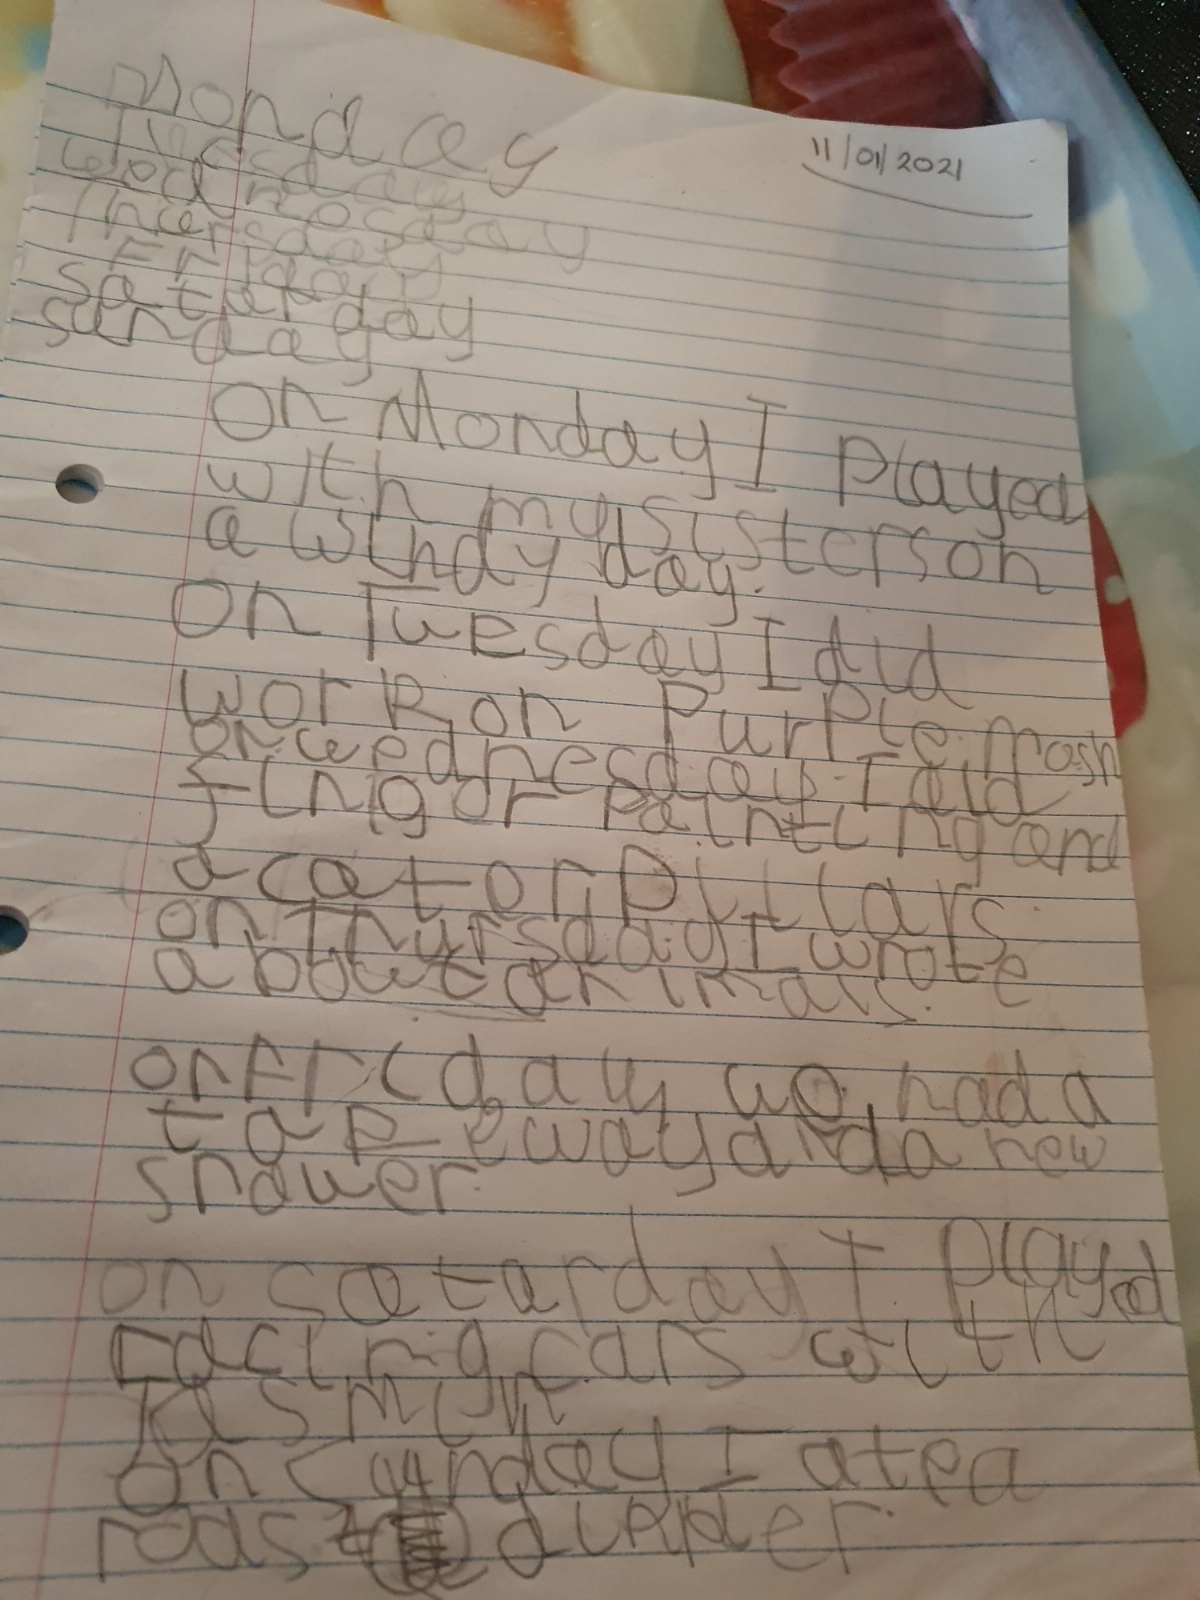 Monday
11/01/2021
Tuesday
wednesday
Thursday
Friday
saterday
sunday
On Monday I played
with my sisterson
a windy day.
On Tuesday I did
work on Purple Mash
on wednesday I did
fingor painting and
a catorpillars.
on Thursday I wrote
about animals.
on Friday we had a
take eway and a new
shower.
on saturday I played
racing cars with
Jasmin
On sunday I ate a
roast dinner.